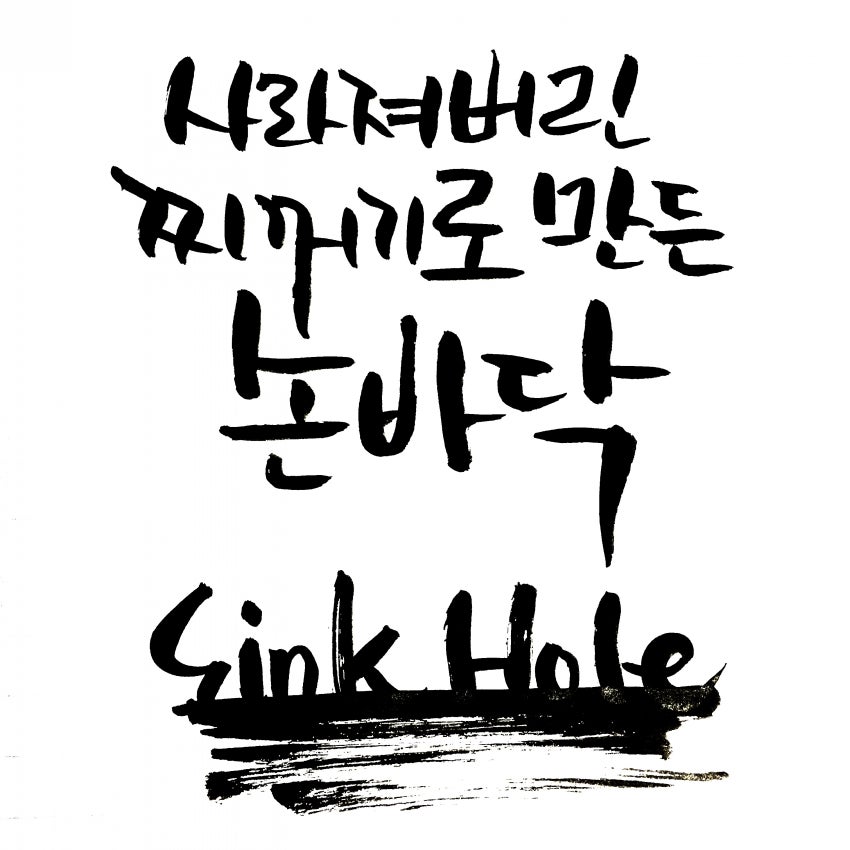 사라져버린
찌꺼기로 만든
논바닥
Sink Hole